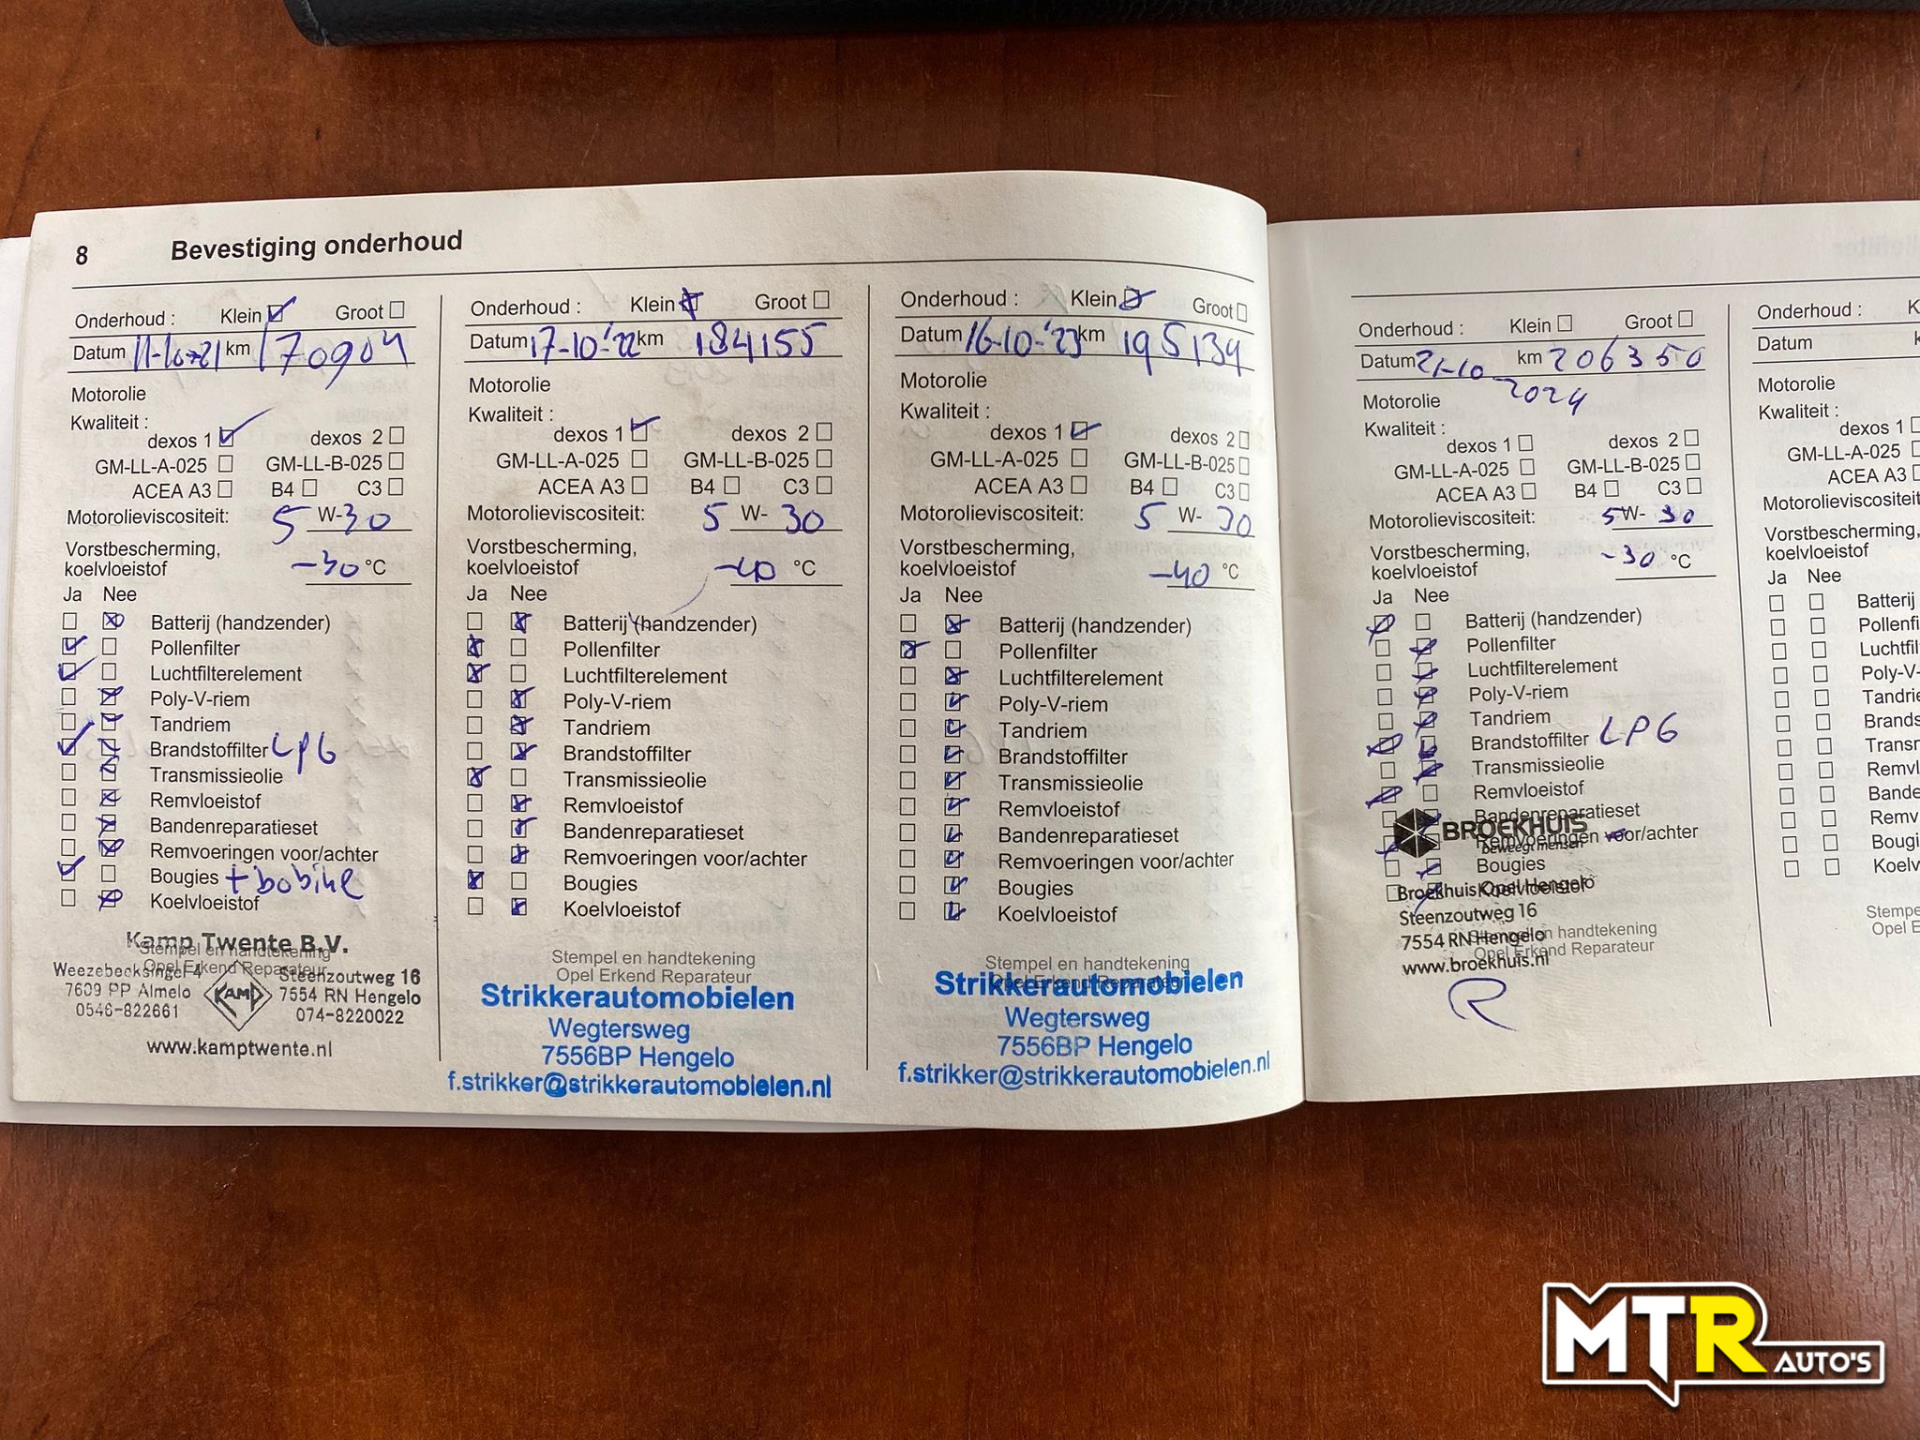 8 Bevestiging onderhoud
Onderhoud : Klein Groot
Datum 11-10-21 km 170904
Motorolie
Kwaliteit :
dexos 1 dexos 2
GM-LL-A-025 GM-LL-B-025
ACEA A3 B4 C3
Motorolieviscositeit: 5 W-30
Vorstbescherming,
koelvloeistof -30 °C
Ja Nee
Batterij (handzender)
Pollenfilter
Luchtfilterelement
Poly-V-riem
Tandriem
Brandstoffilter LPG
Transmissieolie
Remvloeistof
Bandenreparatieset
Remvoeringen voor/achter
Bougies + bobine
Koelvloeistof
Kamp Twente B.V.
Stempel en handtekening
Opel Erkend Reparateur
Weezebeeksingel 4
7609 PP Almelo
0546-822661
KAMP
Steenzoutweg 16
7554 RN Hengelo
074-8220022
www.kamptwente.nl
Onderhoud : Klein Groot
Datum 17-10-'22 km 184155
Motorolie
Kwaliteit :
dexos 1 dexos 2
GM-LL-A-025 GM-LL-B-025
ACEA A3 B4 C3
Motorolieviscositeit: 5 W- 30
Vorstbescherming,
koelvloeistof -40 °C
Ja Nee
Batterij (handzender)
Pollenfilter
Luchtfilterelement
Poly-V-riem
Tandriem
Brandstoffilter
Transmissieolie
Remvloeistof
Bandenreparatieset
Remvoeringen voor/achter
Bougies
Koelvloeistof
Stempel en handtekening
Opel Erkend Reparateur
Strikkerautomobielen
Wegtersweg
7556BP Hengelo
f.strikker@strikkerautomobielen.nl
Onderhoud : Klein Groot
Datum 16-10-'23 km 195139
Motorolie
Kwaliteit :
dexos 1 dexos 2
GM-LL-A-025 GM-LL-B-025
ACEA A3 B4 C3
Motorolieviscositeit: 5 W- 30
Vorstbescherming,
koelvloeistof -40 °C
Ja Nee
Batterij (handzender)
Pollenfilter
Luchtfilterelement
Poly-V-riem
Tandriem
Brandstoffilter
Transmissieolie
Remvloeistof
Bandenreparatieset
Remvoeringen voor/achter
Bougies
Koelvloeistof
Stempel en handtekening
Opel Erkend Reparateur
Strikkerautomobielen
Wegtersweg
7556BP Hengelo
f.strikker@strikkerautomobielen.nl
Onderhoud : Klein Groot
Datum 21-10-2024 km 206350
Motorolie
Kwaliteit :
dexos 1 dexos 2
GM-LL-A-025 GM-LL-B-025
ACEA A3 B4 C3
Motorolieviscositeit: 5W- 30
Vorstbescherming,
koelvloeistof -30 °C
Ja Nee
Batterij (handzender)
Pollenfilter
Luchtfilterelement
Poly-V-riem
Tandriem
Brandstoffilter LPG
Transmissieolie
Remvloeistof
Bandenreparatieset
BROEKHUIS
Remvoeringen voor/achter
beweegt mensen
Bougies
Koelvloeistof
Broekhuis Opel Hengelo
Steenzoutweg 16
7554 RN Hengelo
Stempel en handtekening
Opel Erkend Reparateur
www.broekhuis.nl
R
Onderhoud : K
Datum
Motorolie
Kwaliteit :
dexos 1
GM-LL-A-025
ACEA A3
Motorolieviscositeit
Vorstbescherming,
koelvloeistof
Ja Nee
Batterij
Pollenfi
Luchtfil
Poly-V-
Tandrie
Brands
Transm
Remvl
Bande
Remv
Bougi
Koelv
Stempe
Opel E
MTR AUTO'S